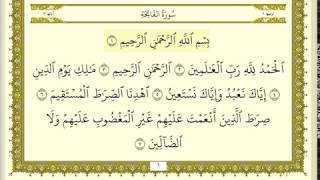 سُورَةُ الفَاتِحَةِ
بِسْمِ ٱللَّهِ ٱلرَّحْمَٰنِ ٱلرَّحِيمِ ١
ٱلْحَمْدُ لِلَّهِ رَبِّ ٱلْعَٰلَمِينَ ٢ ٱلرَّحْمَٰنِ ٱلرَّحِيمِ ٣ مَٰلِكِ يَوْمِ ٱلدِّينِ
٤ إِيَّاكَ نَعْبُدُ وَإِيَّاكَ نَسْتَعِينُ ٥ ٱهْدِنَا ٱلصِّرَٰطَ ٱلْمُسْتَقِيمَ ٦
صِرَٰطَ ٱلَّذِينَ أَنْعَمْتَ عَلَيْهِمْ غَيْرِ ٱلْمَغْضُوبِ عَلَيْهِمْ وَلَا
ٱلضَّآلِّينَ ٧
١